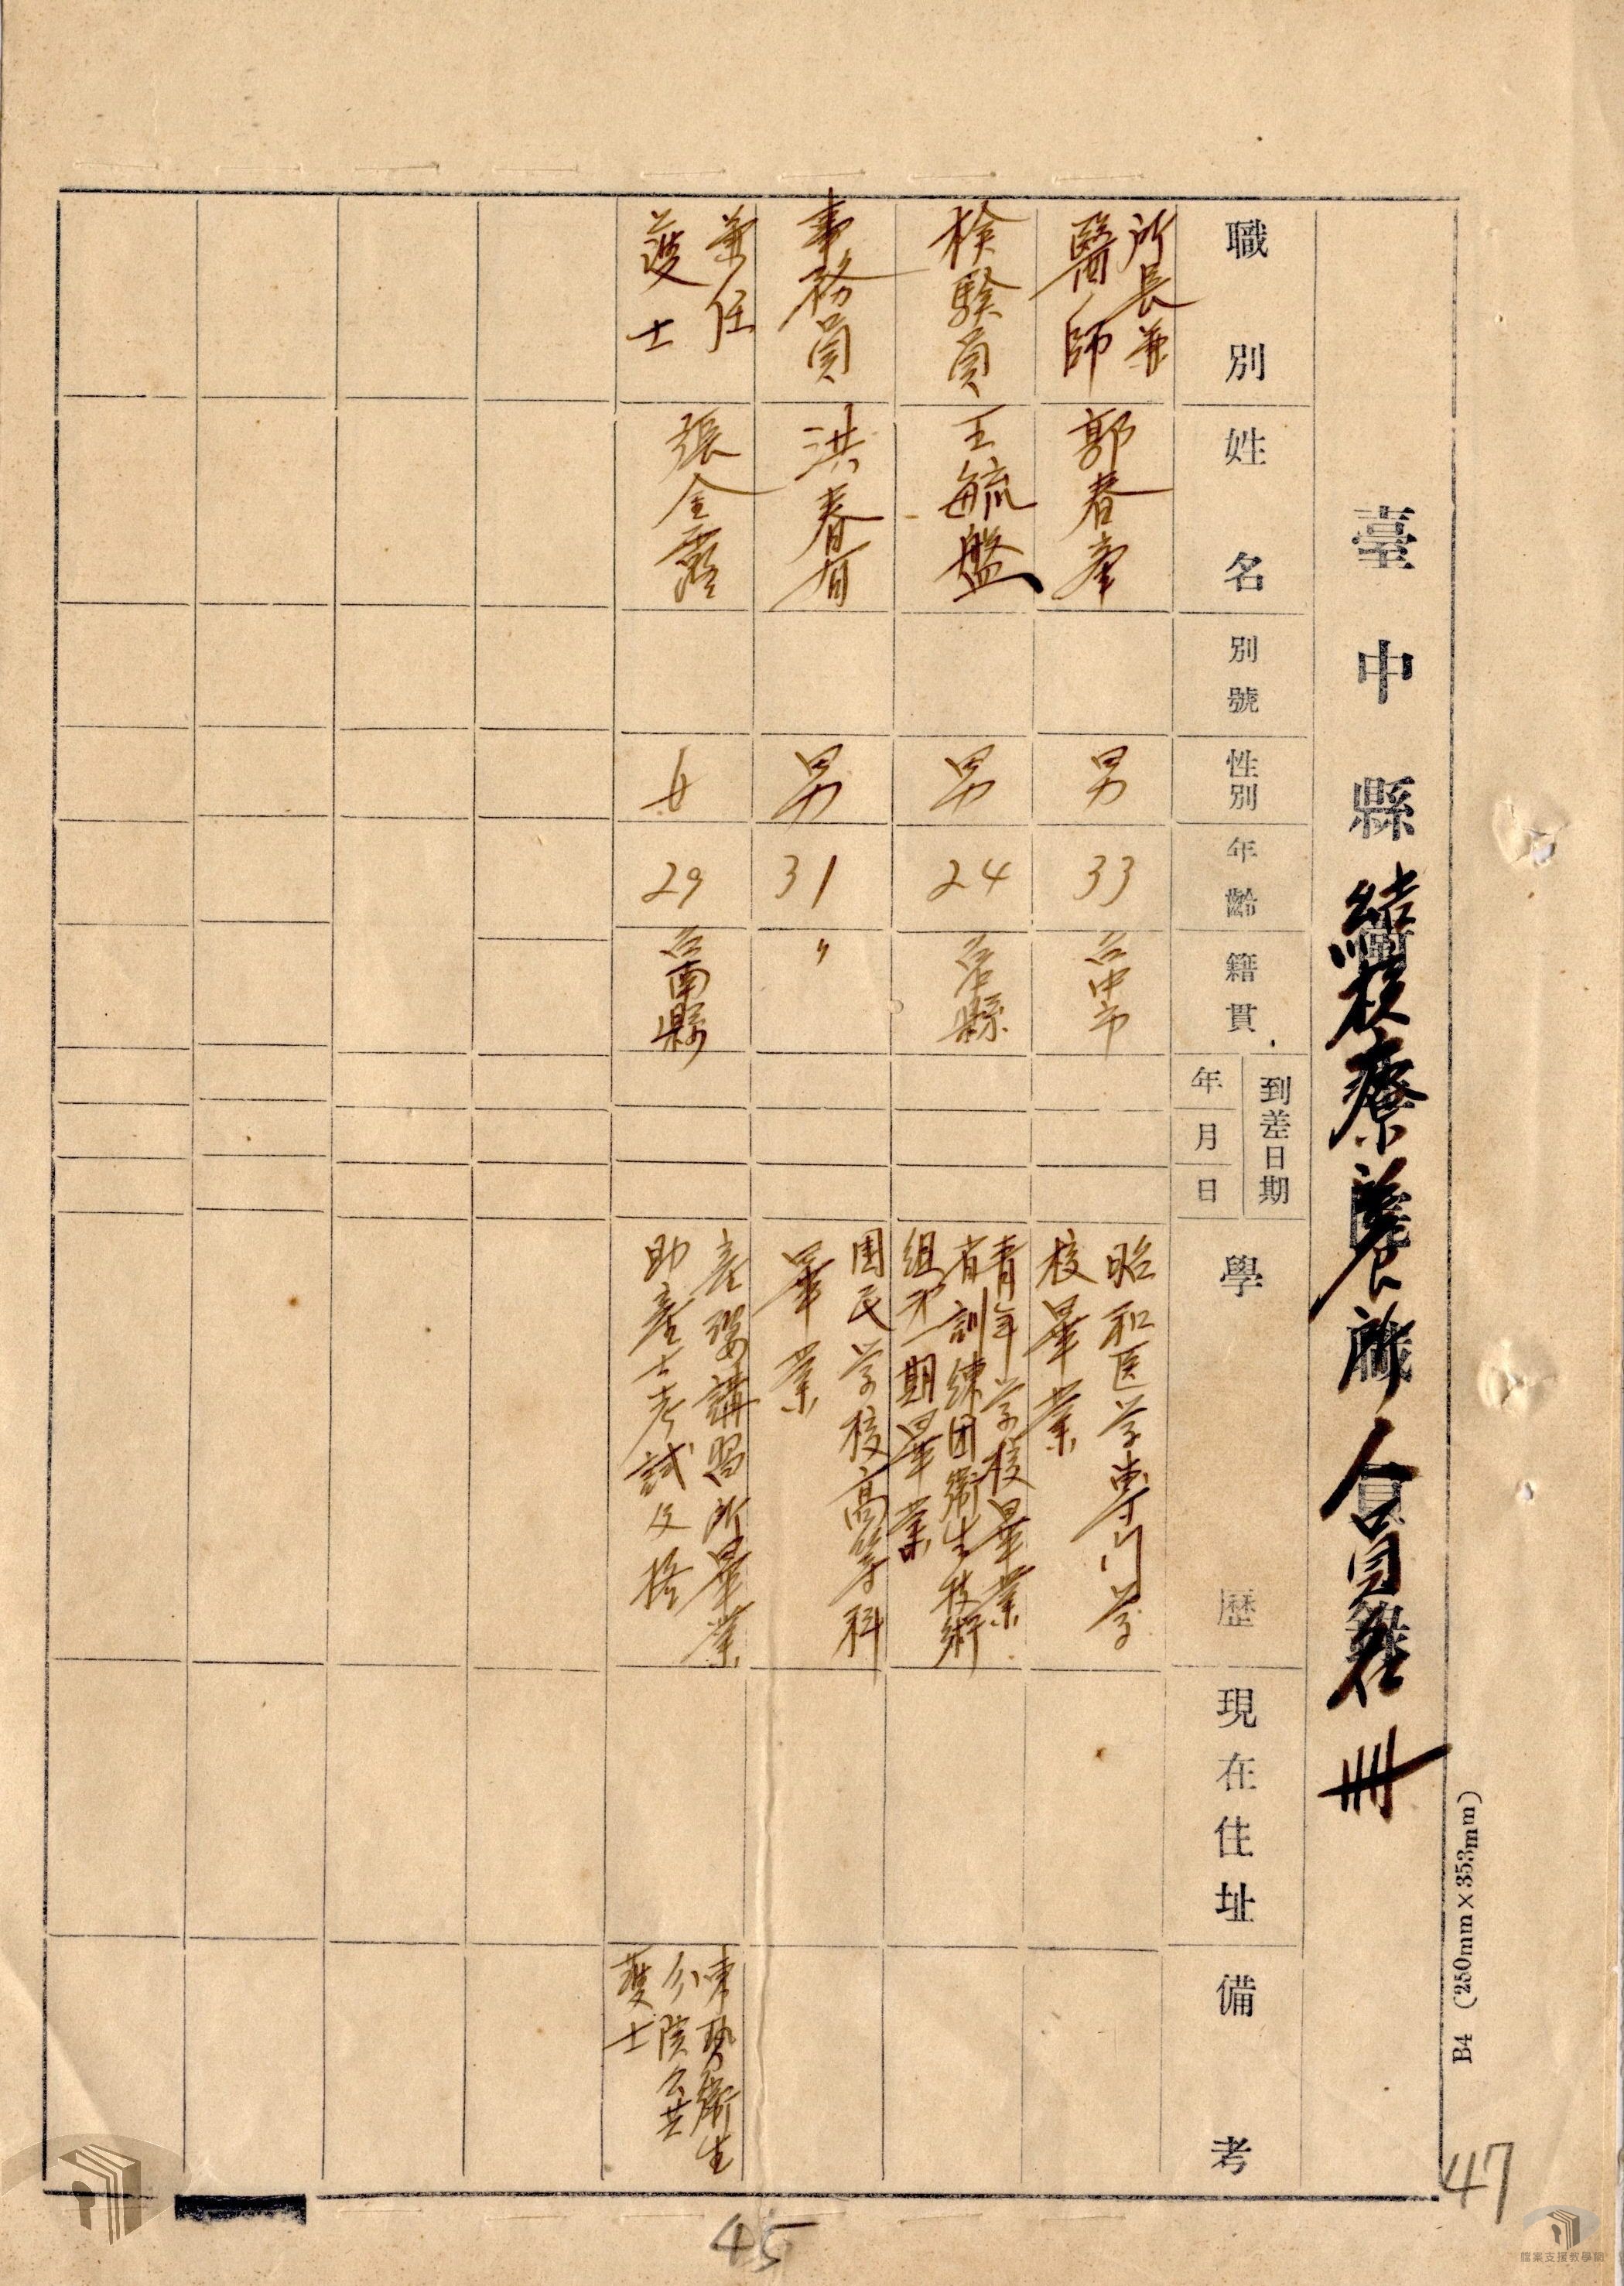 臺中縣結核療養所人員名冊
職別
姓名
別號
性別
年齡
籍貫
到差日期
年
月
日
學歷
現在住址
備考
所長兼
醫師
郭春
男
33
台中市
昭和医学專门学
校畢業
檢驗員
王毓盤
男
24
台中縣
青年学校畢業
省訓練团衛生技術
組第一期畢業
事務員
洪春有
男
31
〃
国民学校高等科
畢業
兼任
護士
張金霞
女
29
台南縣
產婆講習所畢業
助產士考試及格
東勢衛生
分院公共
護士
B4 (250mm×353mm)
47
45
檔案支援教學網